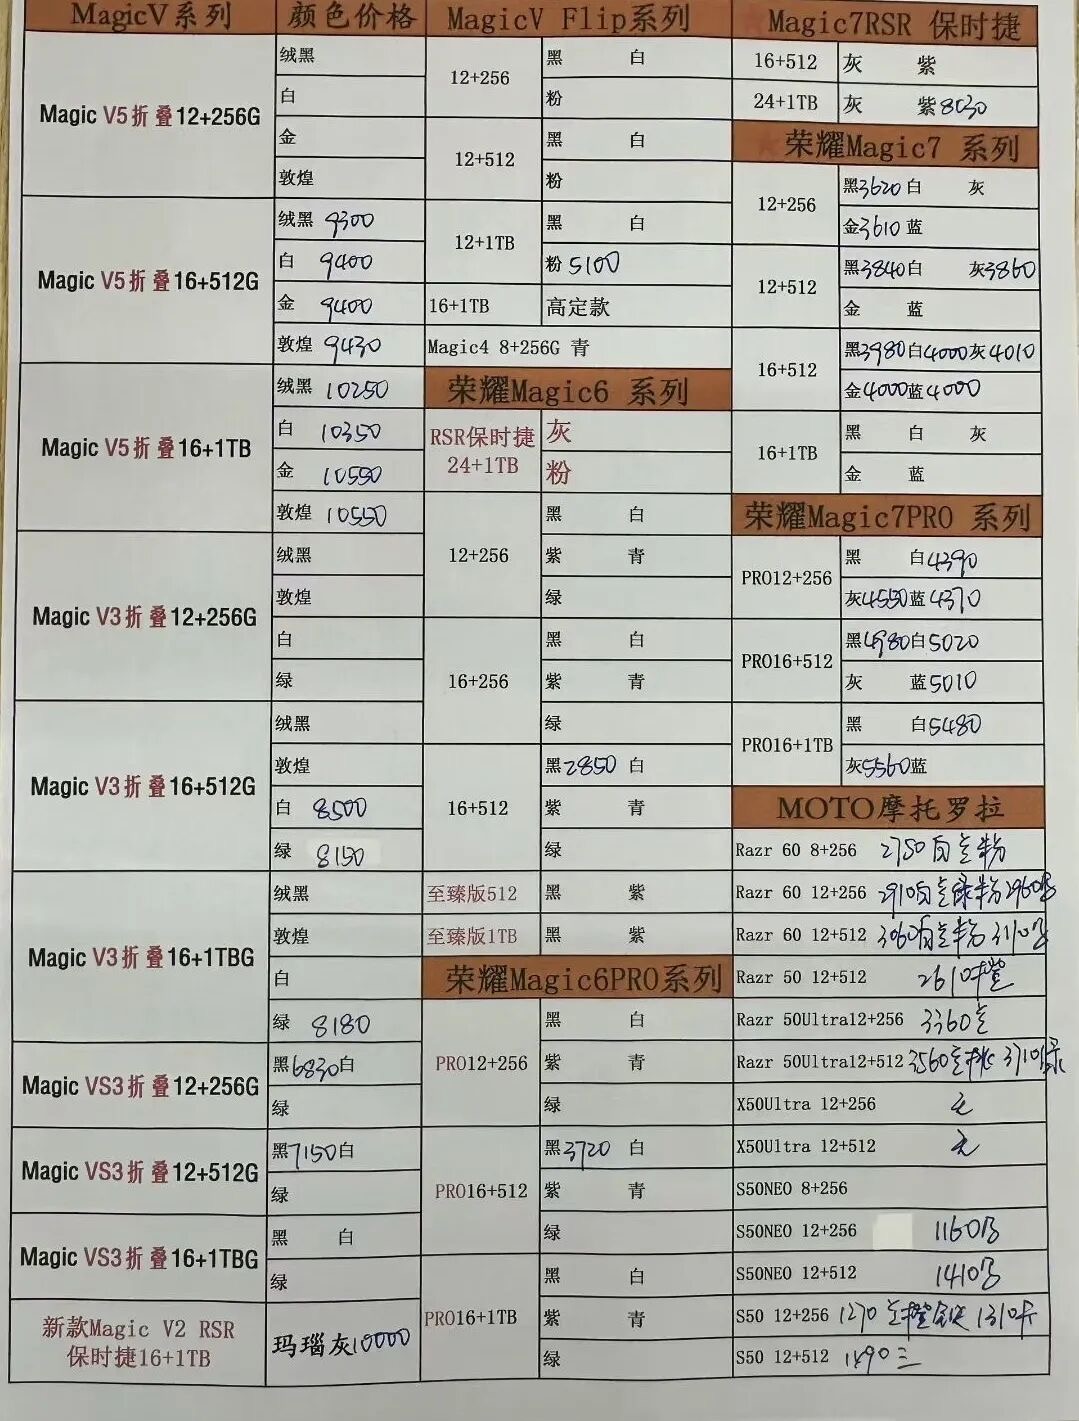 MagicV系列 颜色价格
Magic V5折叠12+256G
绒黑
白
金
敦煌
Magic V5折叠16+512G
绒黑 9300
白 9400
金 9400
敦煌 9430
Magic V5折叠16+1TB
绒黑 10250
白 10350
金 10550
敦煌 10550
Magic V3折叠12+256G
绒黑
敦煌
白
绿
Magic V3折叠16+512G
绒黑
敦煌
白 8500
绿 8150
Magic V3折叠16+1TBG
绒黑
敦煌
白
绿 8180
Magic VS3折叠12+256G
黑6830白
绿
Magic VS3折叠12+512G
黑7150白
绿
Magic VS3折叠16+1TBG
黑 白
绿
新款Magic V2 RSR
保时捷16+1TB
玛瑙灰10000
MagicV Flip系列
12+256
黑 白
粉
12+512
黑 白
粉
12+1TB
黑 白
粉5100
16+1TB 高定款
Magic4 8+256G 青
荣耀Magic6 系列
RSR保时捷
24+1TB
灰
粉
12+256
黑 白
紫 青
绿
16+256
黑 白
紫 青
绿
16+512
黑2850 白
紫 青
绿
至臻版512 黑 紫
至臻版1TB 黑 紫
荣耀Magic6PRO系列
PRO12+256
黑 白
紫 青
绿
PRO16+512
黑3720 白
紫 青
绿
PRO16+1TB
黑 白
紫 青
绿
Magic7RSR 保时捷
16+512 灰 紫
24+1TB 灰 紫8030
荣耀Magic7 系列
12+256
黑3620白 灰
金3610蓝
12+512
黑3840白 灰3860
金 蓝
16+512
黑3980白4000灰4010
金4000蓝4000
16+1TB
黑 白 灰
金 蓝
荣耀Magic7PRO 系列
PRO12+256
黑 白4390
灰4550蓝4370
PRO16+512
黑4980白5020
灰 蓝5010
PRO16+1TB
黑 白5480
灰5560蓝
MOTO摩托罗拉
Razr 60 8+256 2750白 粉
Razr 60 12+256 2910白 绿粉2960
Razr 60 12+512 3060 粉 3110
Razr 50 12+512 2610 橙
Razr 50Ultra12+256 3360
Razr 50Ultra12+512 3560 桃 3710绿
X50Ultra 12+256 无
X50Ultra 12+512 无
S50NEO 8+256
S50NEO 12+256 1160
S50NEO 12+512 1410
S50 12+256 1270 橙 1310
S50 12+512 1490三